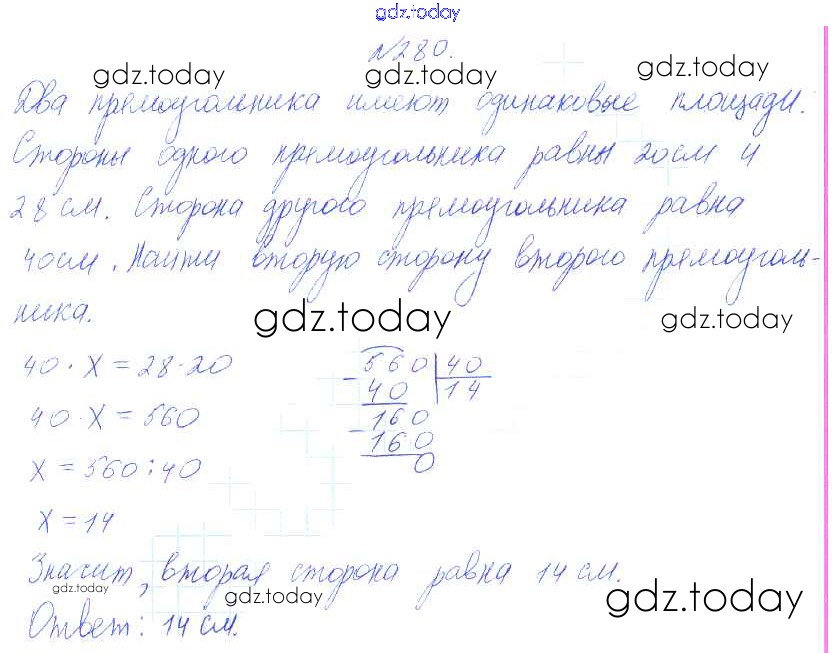 gdz.today
№280.
gdz.today gdz.today
Два прямоугольника имеют одинаковые площади.
Стороны одного прямоугольника равны 20см и
28 см. Сторона другого прямоугольника равна
40см. Найти вторую сторону второго прямоуголь-
ника.
gdz.today gdz.today
40 · x = 28·20
40 · x = 560
x = 560 : 40
x = 14
- 560 | 40
40 | 14
- 160
160
0
Значит, вторая сторона равна 14 см.
gdz.today gdz.today gdz.today
Ответ: 14 см.